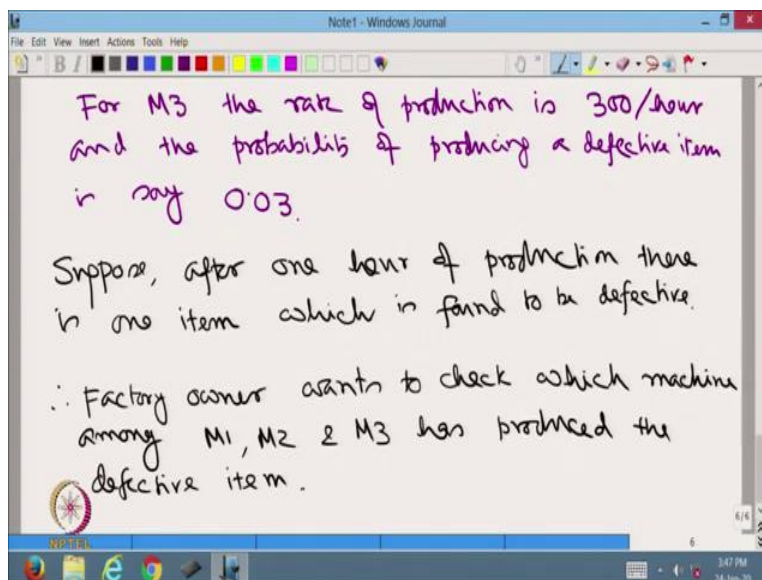 Note1 - Windows Journal
File Edit View Insert Actions Tools Help
B I
For M3 the rate of production is 300/hour
and the probability of producing a defective item
is say 0.03.
Suppose, after one hour of production there
is one item which is found to be defective.
∴ Factory owner wants to check which machine
among M1, M2 & M3 has produced the
defective item.
NPTEL
6/6
6
3:47 PM